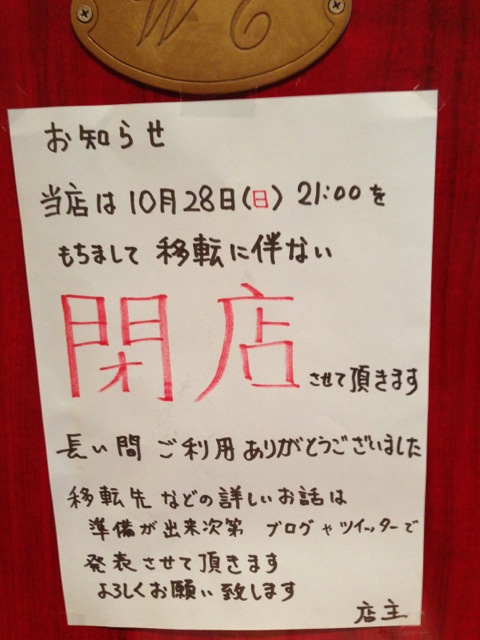 WC
お知らせ
当店は10月28日(日) 21:00を
もちまして 移転に伴ない
閉店させて頂きます
長い間 ご利用ありがとうございました
移転先などの詳しいお話は
準備が出来次第 ブログやツイッターで
発表させて頂きます
よろしくお願い致します
店主